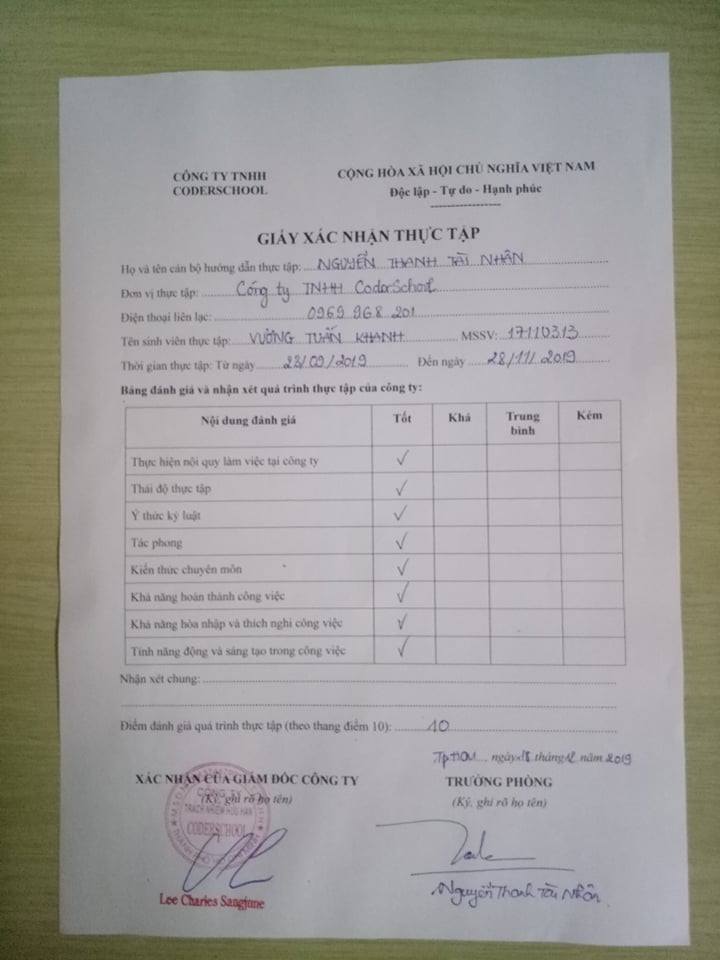 CÔNG TY TNHH
CODERSCHOOL
CỘNG HÒA XÃ HỘI CHỦ NGHĨA VIỆT NAM
Độc lập - Tự do - Hạnh phúc
GIẤY XÁC NHẬN THỰC TẬP
Họ và tên cán bộ hướng dẫn thực tập: NGUYỄN THANH TÀI NHÂN
Đơn vị thực tập: Công ty TNHH CoderSchool
Điện thoại liên lạc: 0969 968 201
Tên sinh viên thực tập: VƯƠNG TUẤN KHANH MSSV: 17110313
Thời gian thực tập: Từ ngày 28/09/2019 Đến ngày 28/11/2019
Bảng đánh giá và nhận xét quá trình thực tập của công ty:
Nội dung đánh giá Tốt Khá Trung bình Kém
Thực hiện nội quy làm việc tại công ty ✓
Thái độ thực tập ✓
Ý thức kỷ luật ✓
Tác phong ✓
Kiến thức chuyên môn ✓
Khả năng hoàn thành công việc ✓
Khả năng hòa nhập và thích nghi công việc ✓
Tính năng động và sáng tạo trong công việc ✓
Nhận xét chung:
Điểm đánh giá quá trình thực tập (theo thang điểm 10): 10
Tp.HCM, ngày 18 tháng 12 năm 2019
XÁC NHẬN CỦA GIÁM ĐỐC CÔNG TY
(Ký, ghi rõ họ tên)
TRƯỞNG PHÒNG
(Ký, ghi rõ họ tên)
CÔNG TY
TRÁCH NHIỆM HỮU HẠN
CODERSCHOOL
THÀNH PHỐ HỒ CHÍ MINH
Lee Charles Sangjune
Nguyễn Thanh Tài Nhân